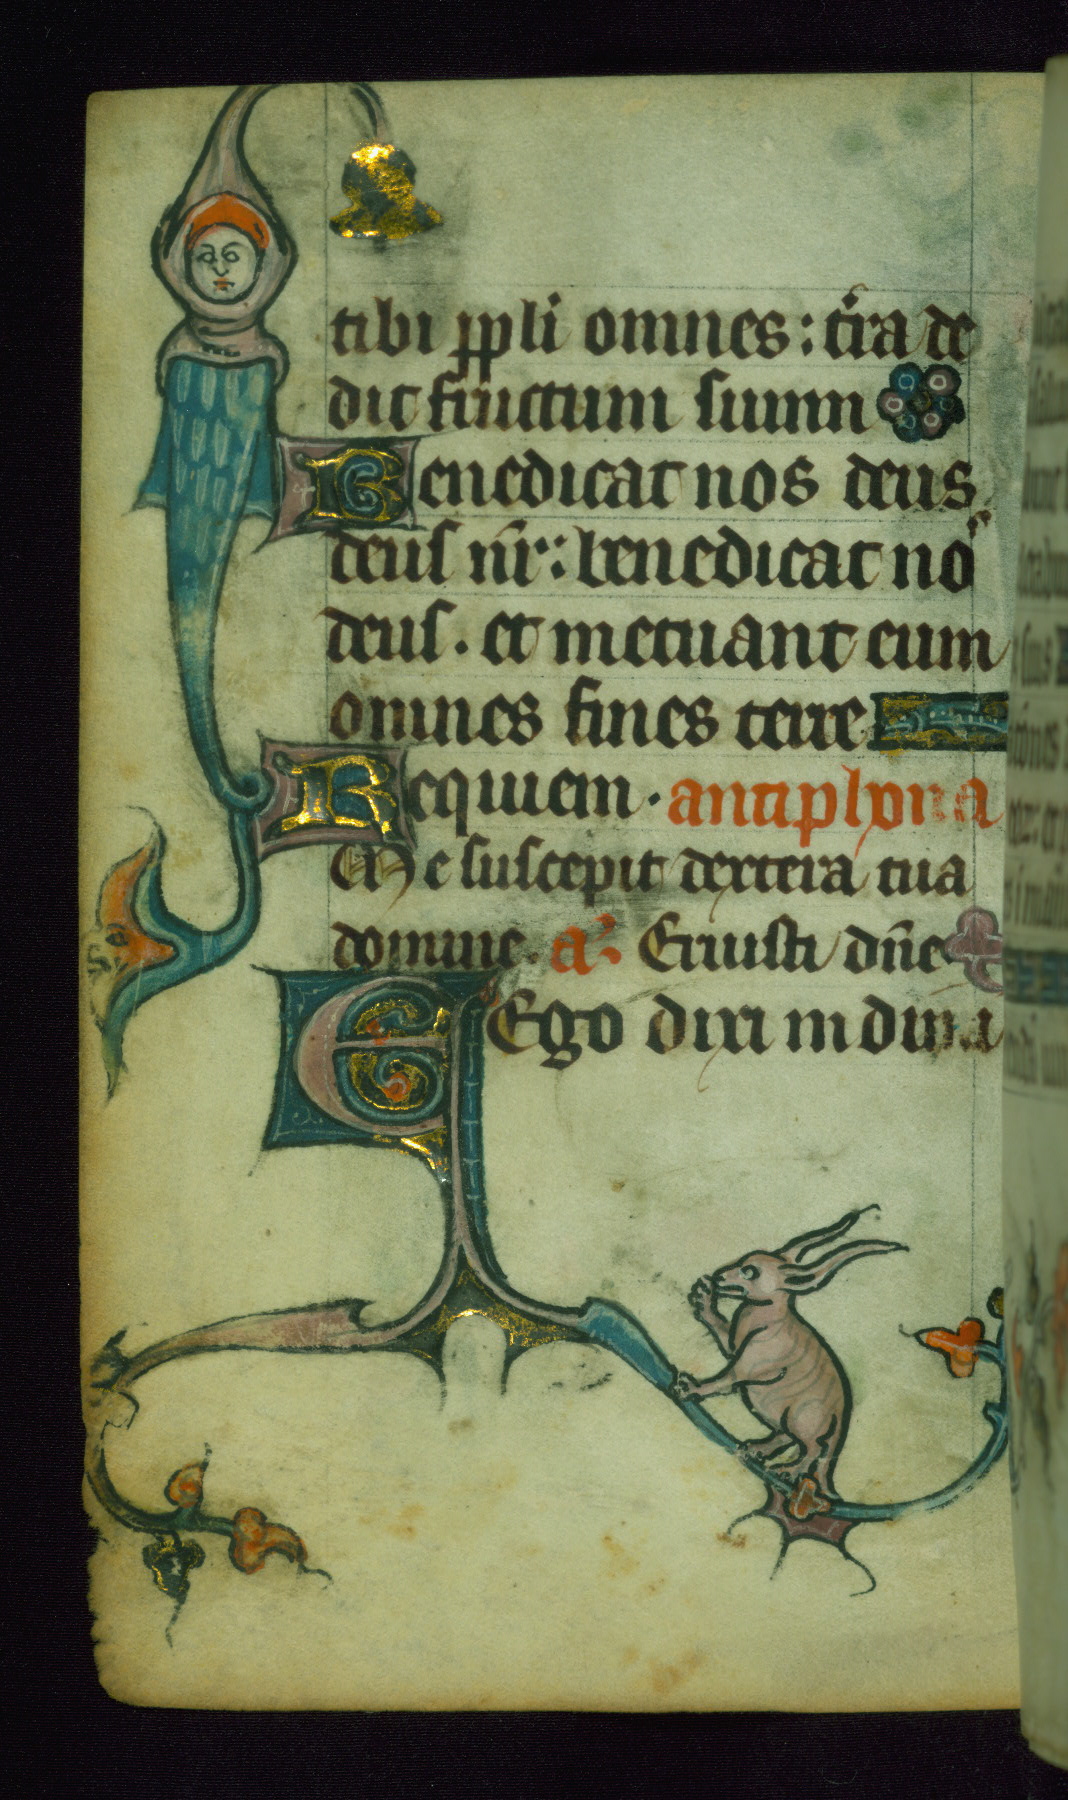 tibi pp̄li omnes : t̄ra de
dit fructum suum
Benedicat nos deus
deus nr̄ : benedicat nos
deus . et metuant eum
omnes fines terre
Requiem . antiphona
Me suscepit dextera tua
domine . a. Eruisti dn̄e
Ego dixi in dimi